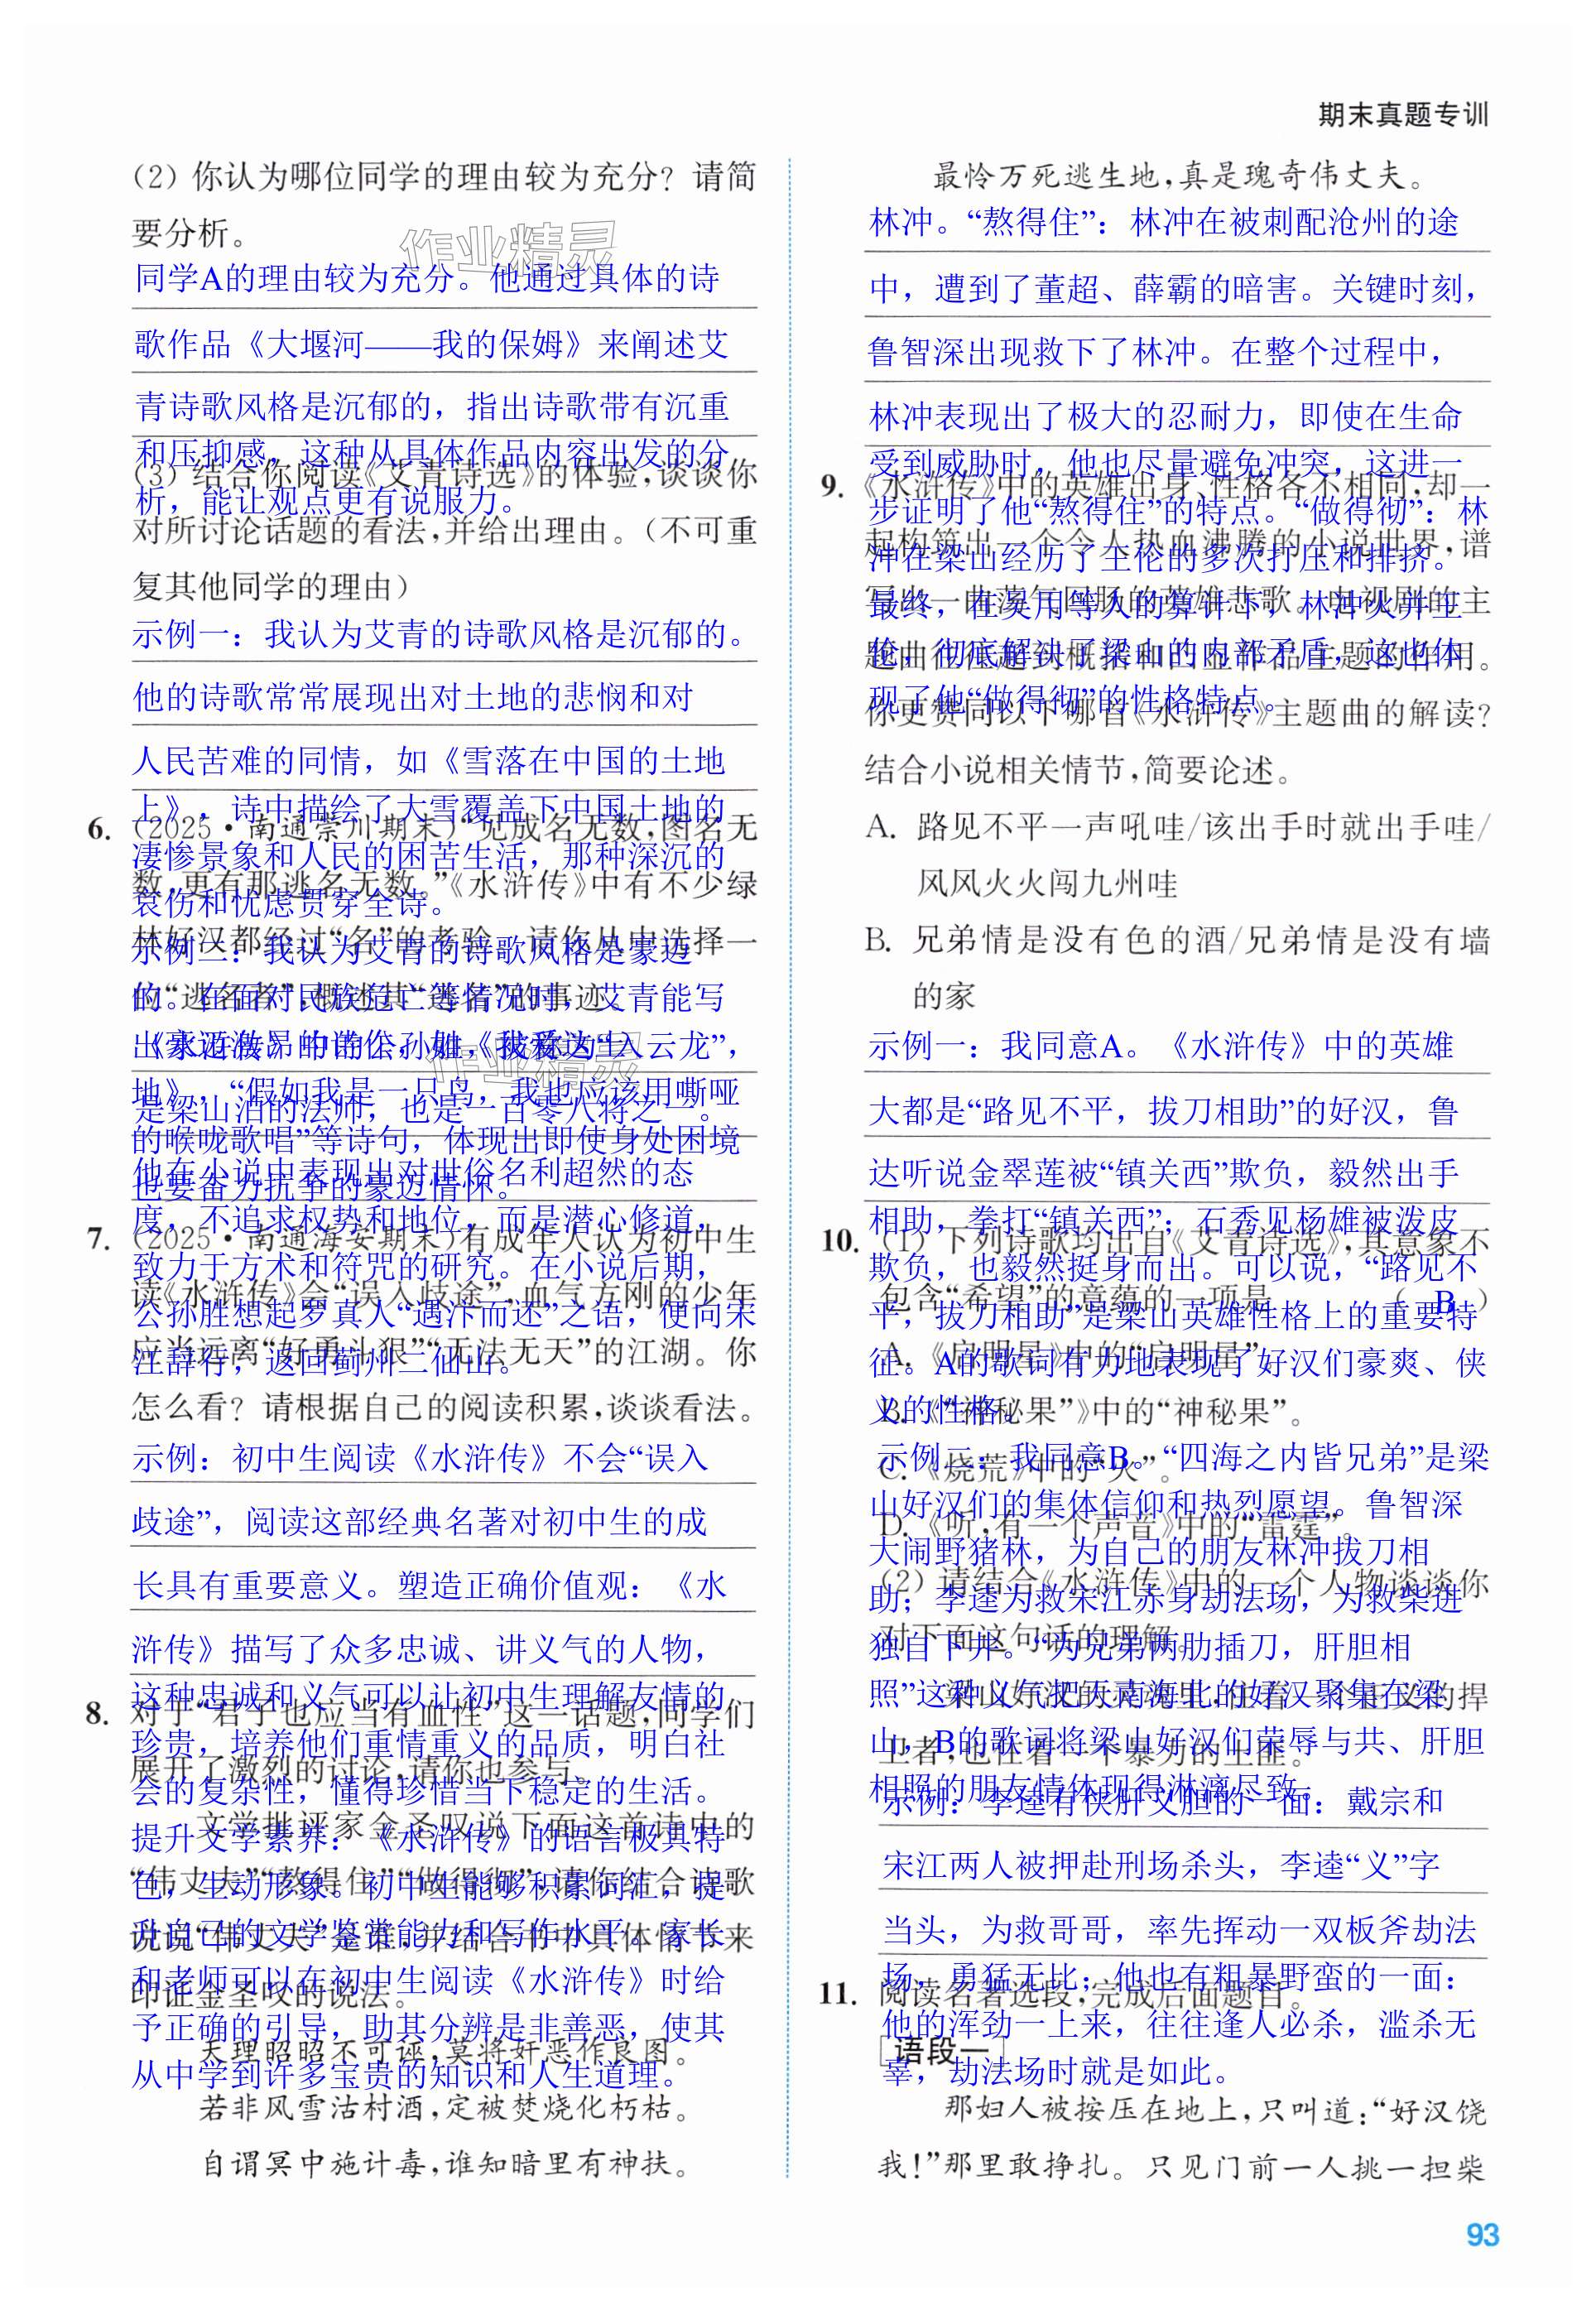 期末真题专训
(2) 你认为哪位同学的理由较为充分？请简
要分析。
作业精灵
同学A的理由较为充分。他通过具体的诗
歌作品《大堰河——我的保姆》来阐述艾
青诗歌风格是沉郁的，指出诗歌带有沉重
和压抑感，这种从具体作品内容出发的分
析，能让观点更有说服力。
(3) 结合你阅读《艾青诗选》的体验,谈谈你
对所讨论话题的看法,并给出理由。(不可重
复其他同学的理由)
示例一：我认为艾青的诗歌风格是沉郁的。
他的诗歌常常展现出对土地的悲悯和对
人民苦难的同情，如《雪落在中国的土地
上》，诗中描绘了大雪覆盖下中国土地的
凄惨景象和人民的困苦生活，那种深沉的
哀伤和忧虑贯穿全诗。
示例二：我认为艾青的诗歌风格是豪迈
的。在面对民族危亡等情况时，艾青能写
出豪迈激昂的诗作，如《我爱这土
地》，“假如我是一只鸟，我也应该用嘶哑
的喉咙歌唱”等诗句，体现出即使身处困境
也要奋力抗争的豪迈情怀。
6. (2025·南通崇川期末)“见成名无数,图名无
数,更有那逃名无数。”《水浒传》中有不少绿
林好汉都经过“名”的考验。请你从中选择一
位“逃名者”,概述其“逃名”的事迹。
《水浒传》中的公孙胜，被称为“入云龙”，
是梁山泊的法师，也是一百零八将之一。
他在小说中表现出对世俗名利超然的态
度，不追求权势和地位，而是潜心修道，
致力于方术和符咒的研究。在小说后期，
公孙胜想起罗真人“遇汴而还”之语，便向宋
江辞行，返回蓟州二仙山。
7. (2025·南通海安期末)有成年人认为初中生
读《水浒传》会“误入歧途”,血气方刚的少年
应当远离“好勇斗狠”“无法无天”的江湖。你
怎么看？请根据自己的阅读积累,谈谈看法。
示例：初中生阅读《水浒传》不会“误入
歧途”，阅读这部经典名著对初中生的成
长具有重要意义。塑造正确价值观：《水
浒传》描写了众多忠诚、讲义气的人物，
这种忠诚和义气可以让初中生理解友情的
珍贵，培养他们重情重义的品质，明白社
会的复杂性，懂得珍惜当下稳定的生活。
提升文学素养：《水浒传》的语言极具特
色，生动形象。初中生能够积累词汇，提
升自己的文学鉴赏能力和写作水平。家长
和老师可以在初中生阅读《水浒传》时给
予正确的引导，助其分辨是非善恶，使其
从中学到许多宝贵的知识和人生道理。
8. 对于“君子也应当有血性”这一话题,同学们
展开了激烈的讨论,请你也参与。
文学批评家金圣叹说下面这首诗中的
“伟丈夫”“熬得住”“做得彻”,请你结合诗歌
说说“伟丈夫”是谁,并结合书中具体情节来
印证金圣叹的说法。
天理昭昭不可诬,莫将奸恶作良图。
若非风雪沽村酒,定被焚烧化朽枯。
自谓冥中施计毒,谁知暗里有神扶。
最怜万死逃生地,真是瑰奇伟丈夫。
林冲。“熬得住”：林冲在被刺配沧州的途
中，遭到了董超、薛霸的暗害。关键时刻，
鲁智深出现救下了林冲。在整个过程中，
林冲表现出了极大的忍耐力，即使在生命
受到威胁时，他也尽量避免冲突，这进一
步证明了他“熬得住”的特点。“做得彻”：林
冲在梁山经历了王伦的多次打压和排挤。
最终，在吴用等人的算计下，林冲火并王
伦，彻底解决了梁山的内部矛盾，这也体
现了他“做得彻”的性格特点。
9. 《水浒传》中的英雄出身、性格各不相同,却一
起构筑出一个令人热血沸腾的小说世界,谱
写出一曲荡气回肠的英雄悲歌。电视剧的主
题曲往往起到概括和凸显作品主题的作用。
你更赞同以下哪首《水浒传》主题曲的解读？
结合小说相关情节,简要论述。
A. 路见不平一声吼哇/该出手时就出手哇/
风风火火闯九州哇
B. 兄弟情是没有色的酒/兄弟情是没有墙
的家
示例一：我同意A。《水浒传》中的英雄
大都是“路见不平，拔刀相助”的好汉，鲁
达听说金翠莲被“镇关西”欺负，毅然出手
相助，拳打“镇关西”；石秀见杨雄被泼皮
欺负，也毅然挺身而出。可以说，“路见不
平，拔刀相助”是梁山英雄性格上的重要特
征。A的歌词有力地表现了好汉们豪爽、侠
义的性格。
示例二：我同意B。“四海之内皆兄弟”是梁
山好汉们的集体信仰和热烈愿望。鲁智深
大闹野猪林，为自己的朋友林冲拔刀相
助；李逵为救宋江赤身劫法场，为救柴进
独自下井。“为兄弟两肋插刀，肝胆相
照”这种义气把天南海北的好汉聚集在梁
山，B的歌词将梁山好汉们荣辱与共、肝胆
相照的朋友情体现得淋漓尽致。
10. (1) 下列诗歌均出自《艾青诗选》,其意象不
包含“希望”的意蕴的一项是 ( B )
A.《启明星》中的“启明星”。
B.《“神秘果”》中的“神秘果”。
C.《烧荒》中的“火”。
D.《听,有一个声音》中的“雷霆”。
(2) 请结合《水浒传》中的一个人物谈谈你
对下面这句话的理解。
梁山好汉的灵魂里,住着一个正义的捍
卫者,也住着一个暴力的土匪。
示例：李逵有侠肝义胆的一面：戴宗和
宋江两人被押赴刑场杀头，李逵“义”字
当头，为救哥哥，率先挥动一双板斧劫法
场，勇猛无比；他也有粗暴野蛮的一面：
他的浑劲一上来，往往逢人必杀，滥杀无
辜，劫法场时就是如此。
11. 阅读名著选段,完成后面题目。
语段一
那妇人被按压在地上,只叫道:“好汉饶
我!”那里敢挣扎。只见门前一人挑一担柴
93